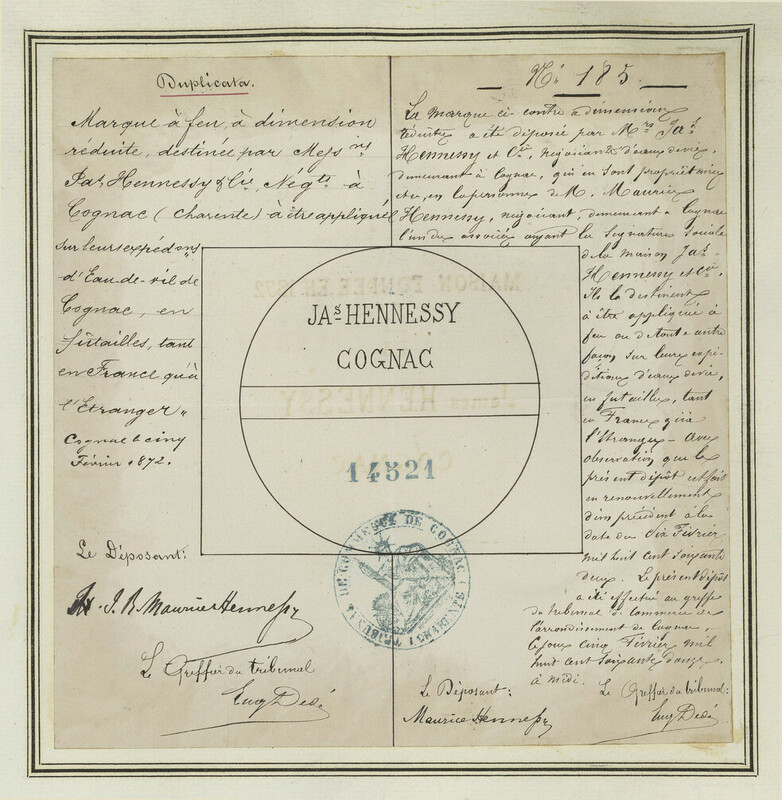 Duplicata.
Marque à feu, à dimension
réduite, destinée par Mess.rs
Jas. Hennessy & Cie, Négts à
Cognac (Charente) à être appliquée
sur leurs expédons
d'Eau-de-vie de
Cognac, en
futailles, tant
en France qu'à
l'Etranger "
Cognac le cinq
Février 1872.
Le Déposant:
J. R. Maurice Hennessy
Le Greffier du tribunal
Eug Dedé
No 185
La marque ci-contre à dimensions
réduites a été déposée par Mrs Jas
Hennessy et Cie, négociants d'eaux de vie,
demeurant à Cognac, qui en sont propriétaires
et en la personne de M. Maurice
Hennessy, négociant, demeurant à Cognac
l'un des associés ayant la signature sociale
de la maison Jas
Hennessy et Cie.
Ils la destinent
à être appliquée à
feu ou de toute autre
façon sur leurs expé-
ditions d'eaux de vie,
en futailles, tant
en France qu'à
l'étranger - Avec
observation que le
présent dépôt est fait
en renouvellement
d'un précédent à la
date du Six Février
mil huit cent soixante
deux. Le présent dépôt
a été effectué au greffe
du tribunal de commerce de
l'arrondissement de Cognac
ce jour cinq Février mil
huit cent soixante douze,
à midi.
Le Déposant:
Maurice Hennessy
Le Greffier du tribunal:
Eug Dedé
JAS HENNESSY
COGNAC
14521
TRIBUNAL DE COMMERCE DE COGNAC (CHARENTE)
MAISON FONDEE EN 1872
James HENNESSY
COGNAC